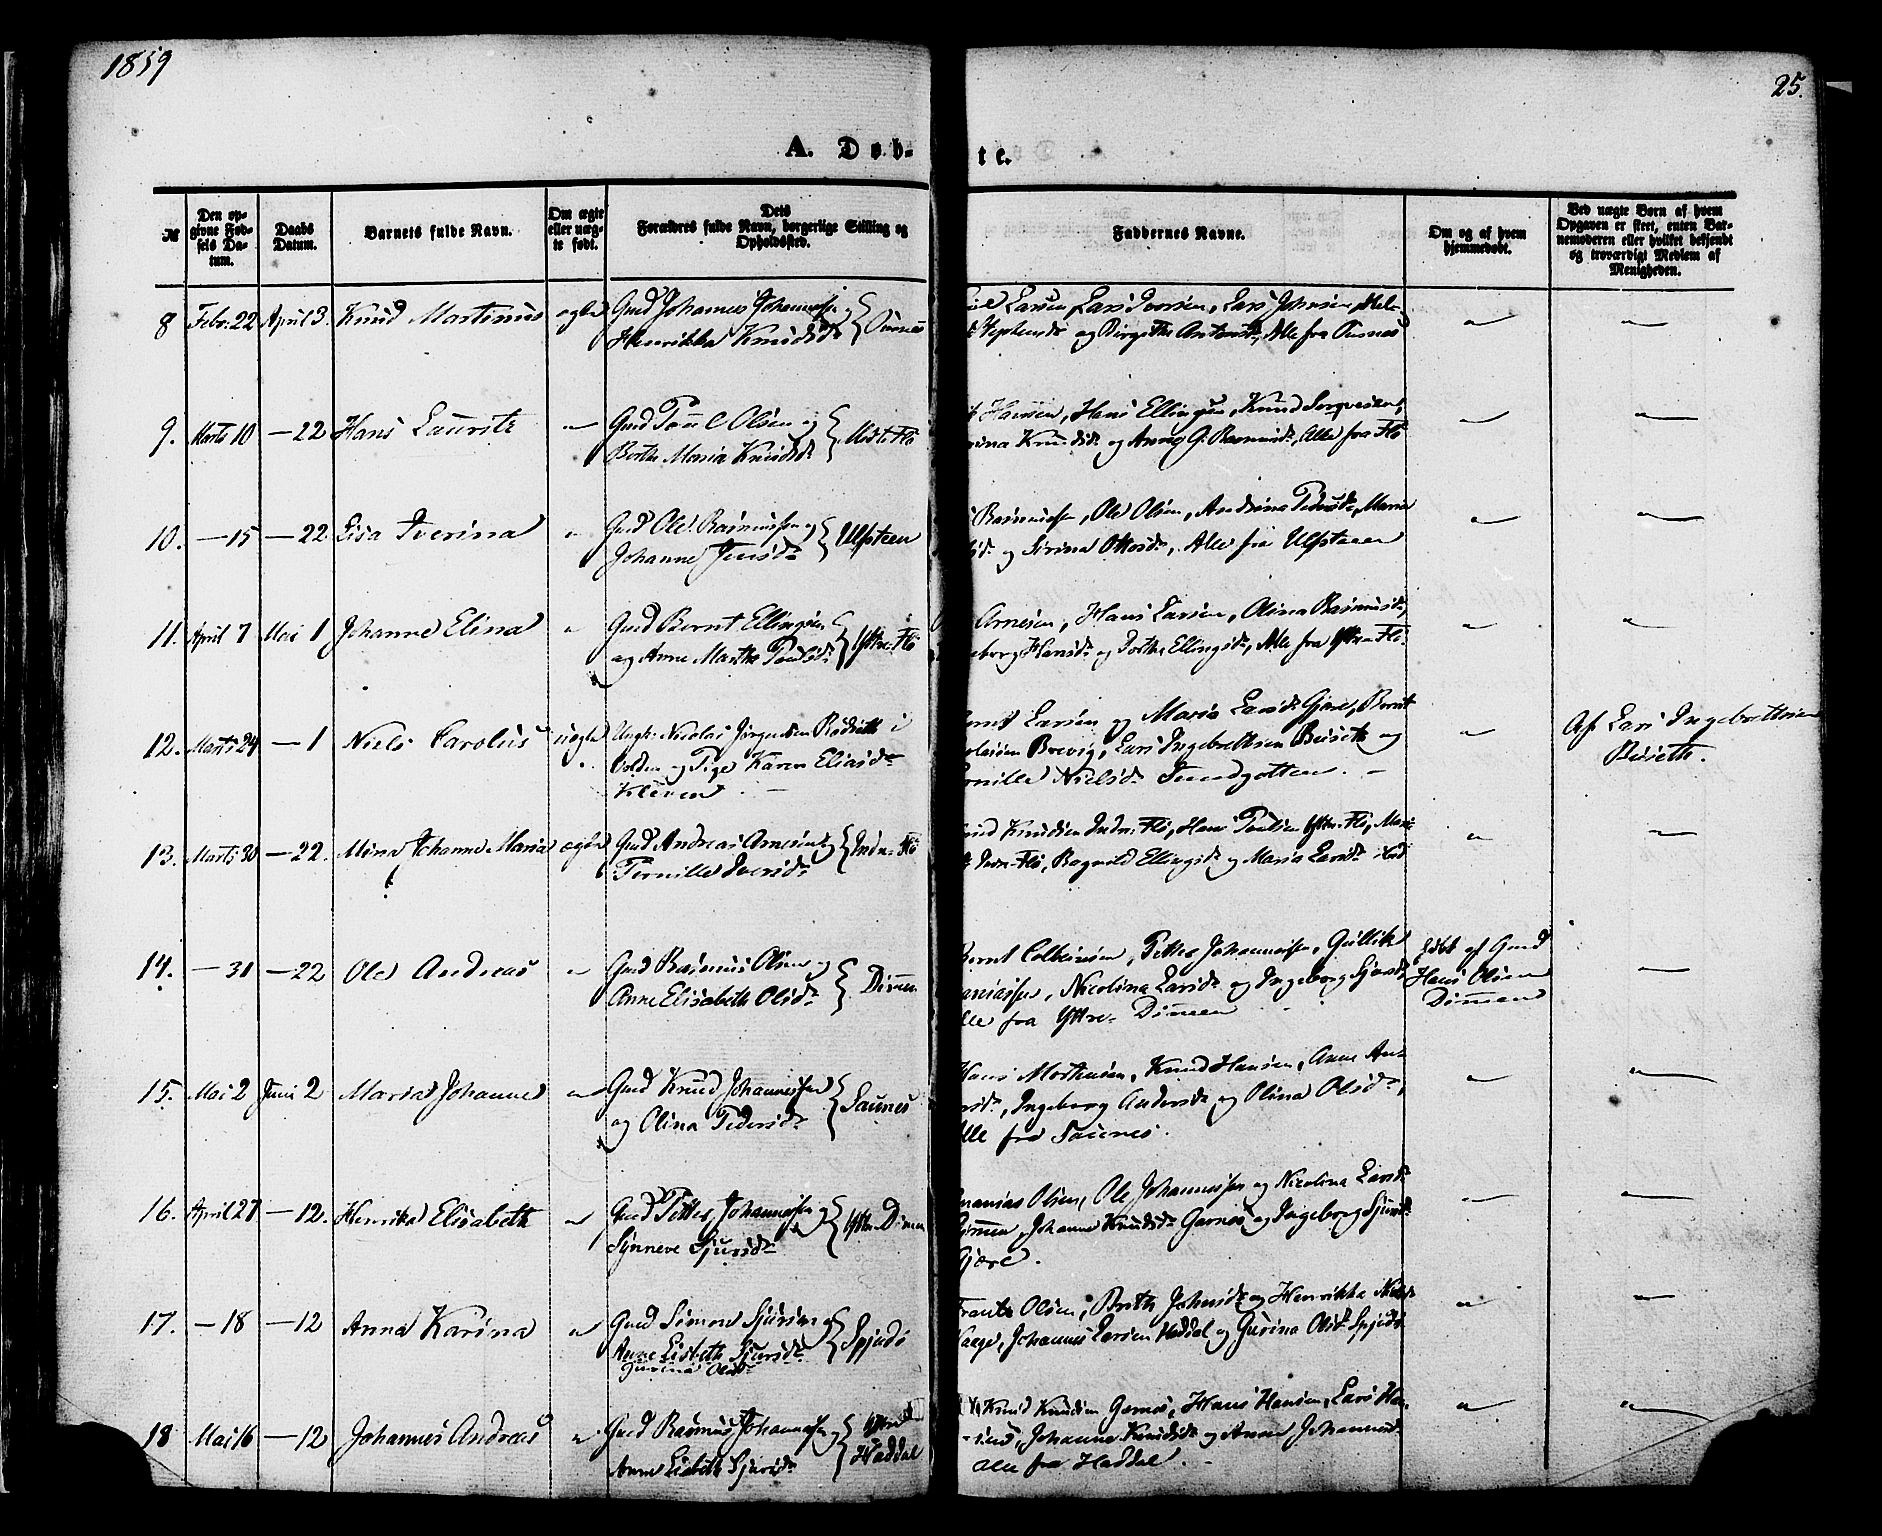 1859
25.
A. Døb-
te.
№
Den op-
givne Fød-
sels Da-
tum.
Daabs
Datum.
Barnets fulde Navn.
Om ægte
eller uæg-
te født.
Dets
Forældres fulde Navn, borgerlige Stilling og
Opholdssted.
Faddernes Navne.
Om og af hvem
hjemmedøbt.
Ved uægte Børn af hvem
Opgaven er skeet, enten Bar-
nemoderen eller hvilket bekjendt
og troværdigt Medlem af
Menigheden.
8 Febr. 22 April 3. Knud Martinus ægte Gmd Johannes Johannessen og
Henrikka Knudsd.
Larsen, Lars Iversen, Lars Johnsen,
og Birgithe Alle fra
9. Marts 10 — 22 Hans Lauritz " Gmd Poul Olsen og
Berthe Maria Knudsd. Midt-Flö
Hansen, Hans Ellingsen, Knud
Knudsd. og Anne G. Rasmusd., Alle fra Flö
10. — 15 — 22 Lisa Iverina " Gmd Ole Rasmussen og
Johanne Jensd. Ulfsteen
Rasmussen, Ole Olsen, Andrina Pedersd., Maria
og Sirina Ottosd., Alle fra Ulfsteen
11. April 7 Mai 1 Johanne Elina " Gmd Bernt Ellingsen
og Anne Marthe Poulsd. Yttre-Flö
Arnesen, Hans Larsen, Olina Rasmusd.,
Hansd. og Ellingsd., Alle fra Yttre-Flö
12. Marts 24 — 1 Niels Carolus uægte Ungk. Nicolai Jörgensen Rödseth i
Volden og Pige Karen Eliasd.
Kleven
Larsen og Maria Larsd. Gjøre, Bernt
Brevig, Lars Ingebrettsen Beiseth og
Nielsd.
Af Lars Ingebrettsen
Beiseth.
13. Marts 30 — 22. Mina Johanne Maria ægte Gmd Andreas Arnesen og
Pernille Iversd. Indr-Flö
Knudsen Indr-Flö, Hans Poulsen Yttre-Flö,
Indre-Flö, Ragnild Ellingsd. og Maria Larsd.
14. — 31 — 22 Ole Andreas " Gmd Rasmus Olsen og
Anne Elisabeth Olsd. Dimen
Bernt Colbeinsen, Petter Johannessen, Gullik
Nicolina Larsd. og Ingeborg Sjursd.
fra Yttre-Dimen
Döbt af Gmd
Hans Olsen
Dimen
15. Mai 2 Juni 2 Maria Johanne " Gmd Knud Johannessen
og Olina Pedersd. Saunes
Hans Mortensen, Knud Hansen, Anne An-
dersd., Ingeborg Andersd. og Olina Olsd.,
Alle fra Saunes.
16. April 27 — 12. Henrika Elisabeth " Gmd Petter Johannessen og
Synneve Sjursd. Yttre Dimen
Ananias Olsen, Ole Johannessen og Nicolina Larsd.
Dimen, Johanne Knudsd. Garnes og Ingeborg Sjursd.
Gjøre.
17. — 18 — 12 Anna Karina " Gmd Simon Sjursen og
Anne Lisbeth Sjursd.
Gurina Olsd. Spjuds
Frants Olsen, Brith Johnsd. og Henrikka
Haage, Johannes Larsen Haddal og Gurina Olsd. Spjuds
18 Mai 16 — 12 Johannes Andreas " Gmd Rasmus Johannessen og
Anne Lisbeth Sjursd. Yttre
Haddal
Knud Knudsen Garnes, Hans Hansen, Lars Han-
sens, Johanne Knudsd. og Anne Johannesd.
Alle fra Haddal.